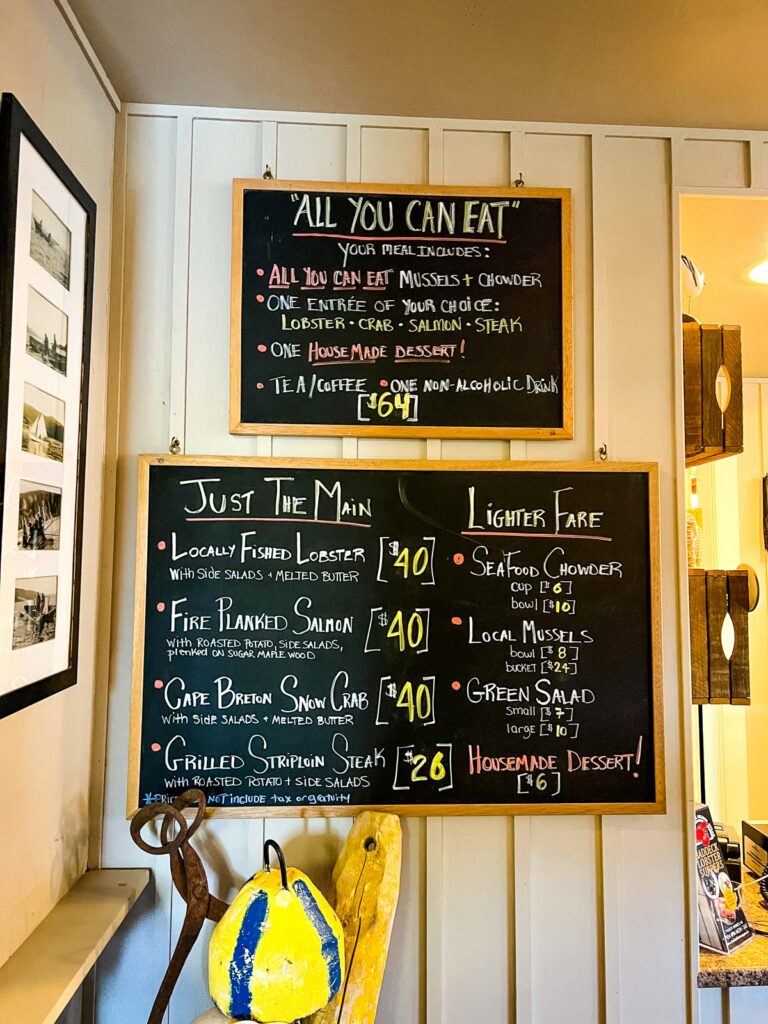 "ALL YOU CAN EAT"
YOUR MEAL INCLUDES:
• ALL YOU CAN EAT MUSSELS + CHOWDER
• ONE ENTRÉE OF YOUR CHOICE:
LOBSTER • CRAB • SALMON • STEAK
• ONE HOUSEMADE DESSERT!
• TEA/COFFEE • ONE NON-ALCOHOLIC DRINK
[$64]
JUST THE MAIN
• LOCALLY FISHED LOBSTER [$40]
WITH SIDE SALADS + MELTED BUTTER
• FIRE PLANKED SALMON [$40]
WITH ROASTED POTATO, SIDE SALADS,
plenked ON SUGAR MAPLE WOOD
• CAPE BRETON SNOW CRAB [$40]
WITH SIDE SALADS + MELTED BUTTER
• GRILLED STRIPLOIN STEAK [$26]
WITH ROASTED POTATO + SIDE SALADS
NOT INCLUDE tax or gratuity
LIGHTER FARE
• SEAFOOD CHOWDER
cup [$6]
bowl [$10]
• LOCAL MUSSELS
bowl [$8]
bucket [$24]
• GREEN SALAD
small [$7]
large [$10]
HOUSEMADE DESSERT!
[$6]
BADDECK
LOBSTER
SUPPERS